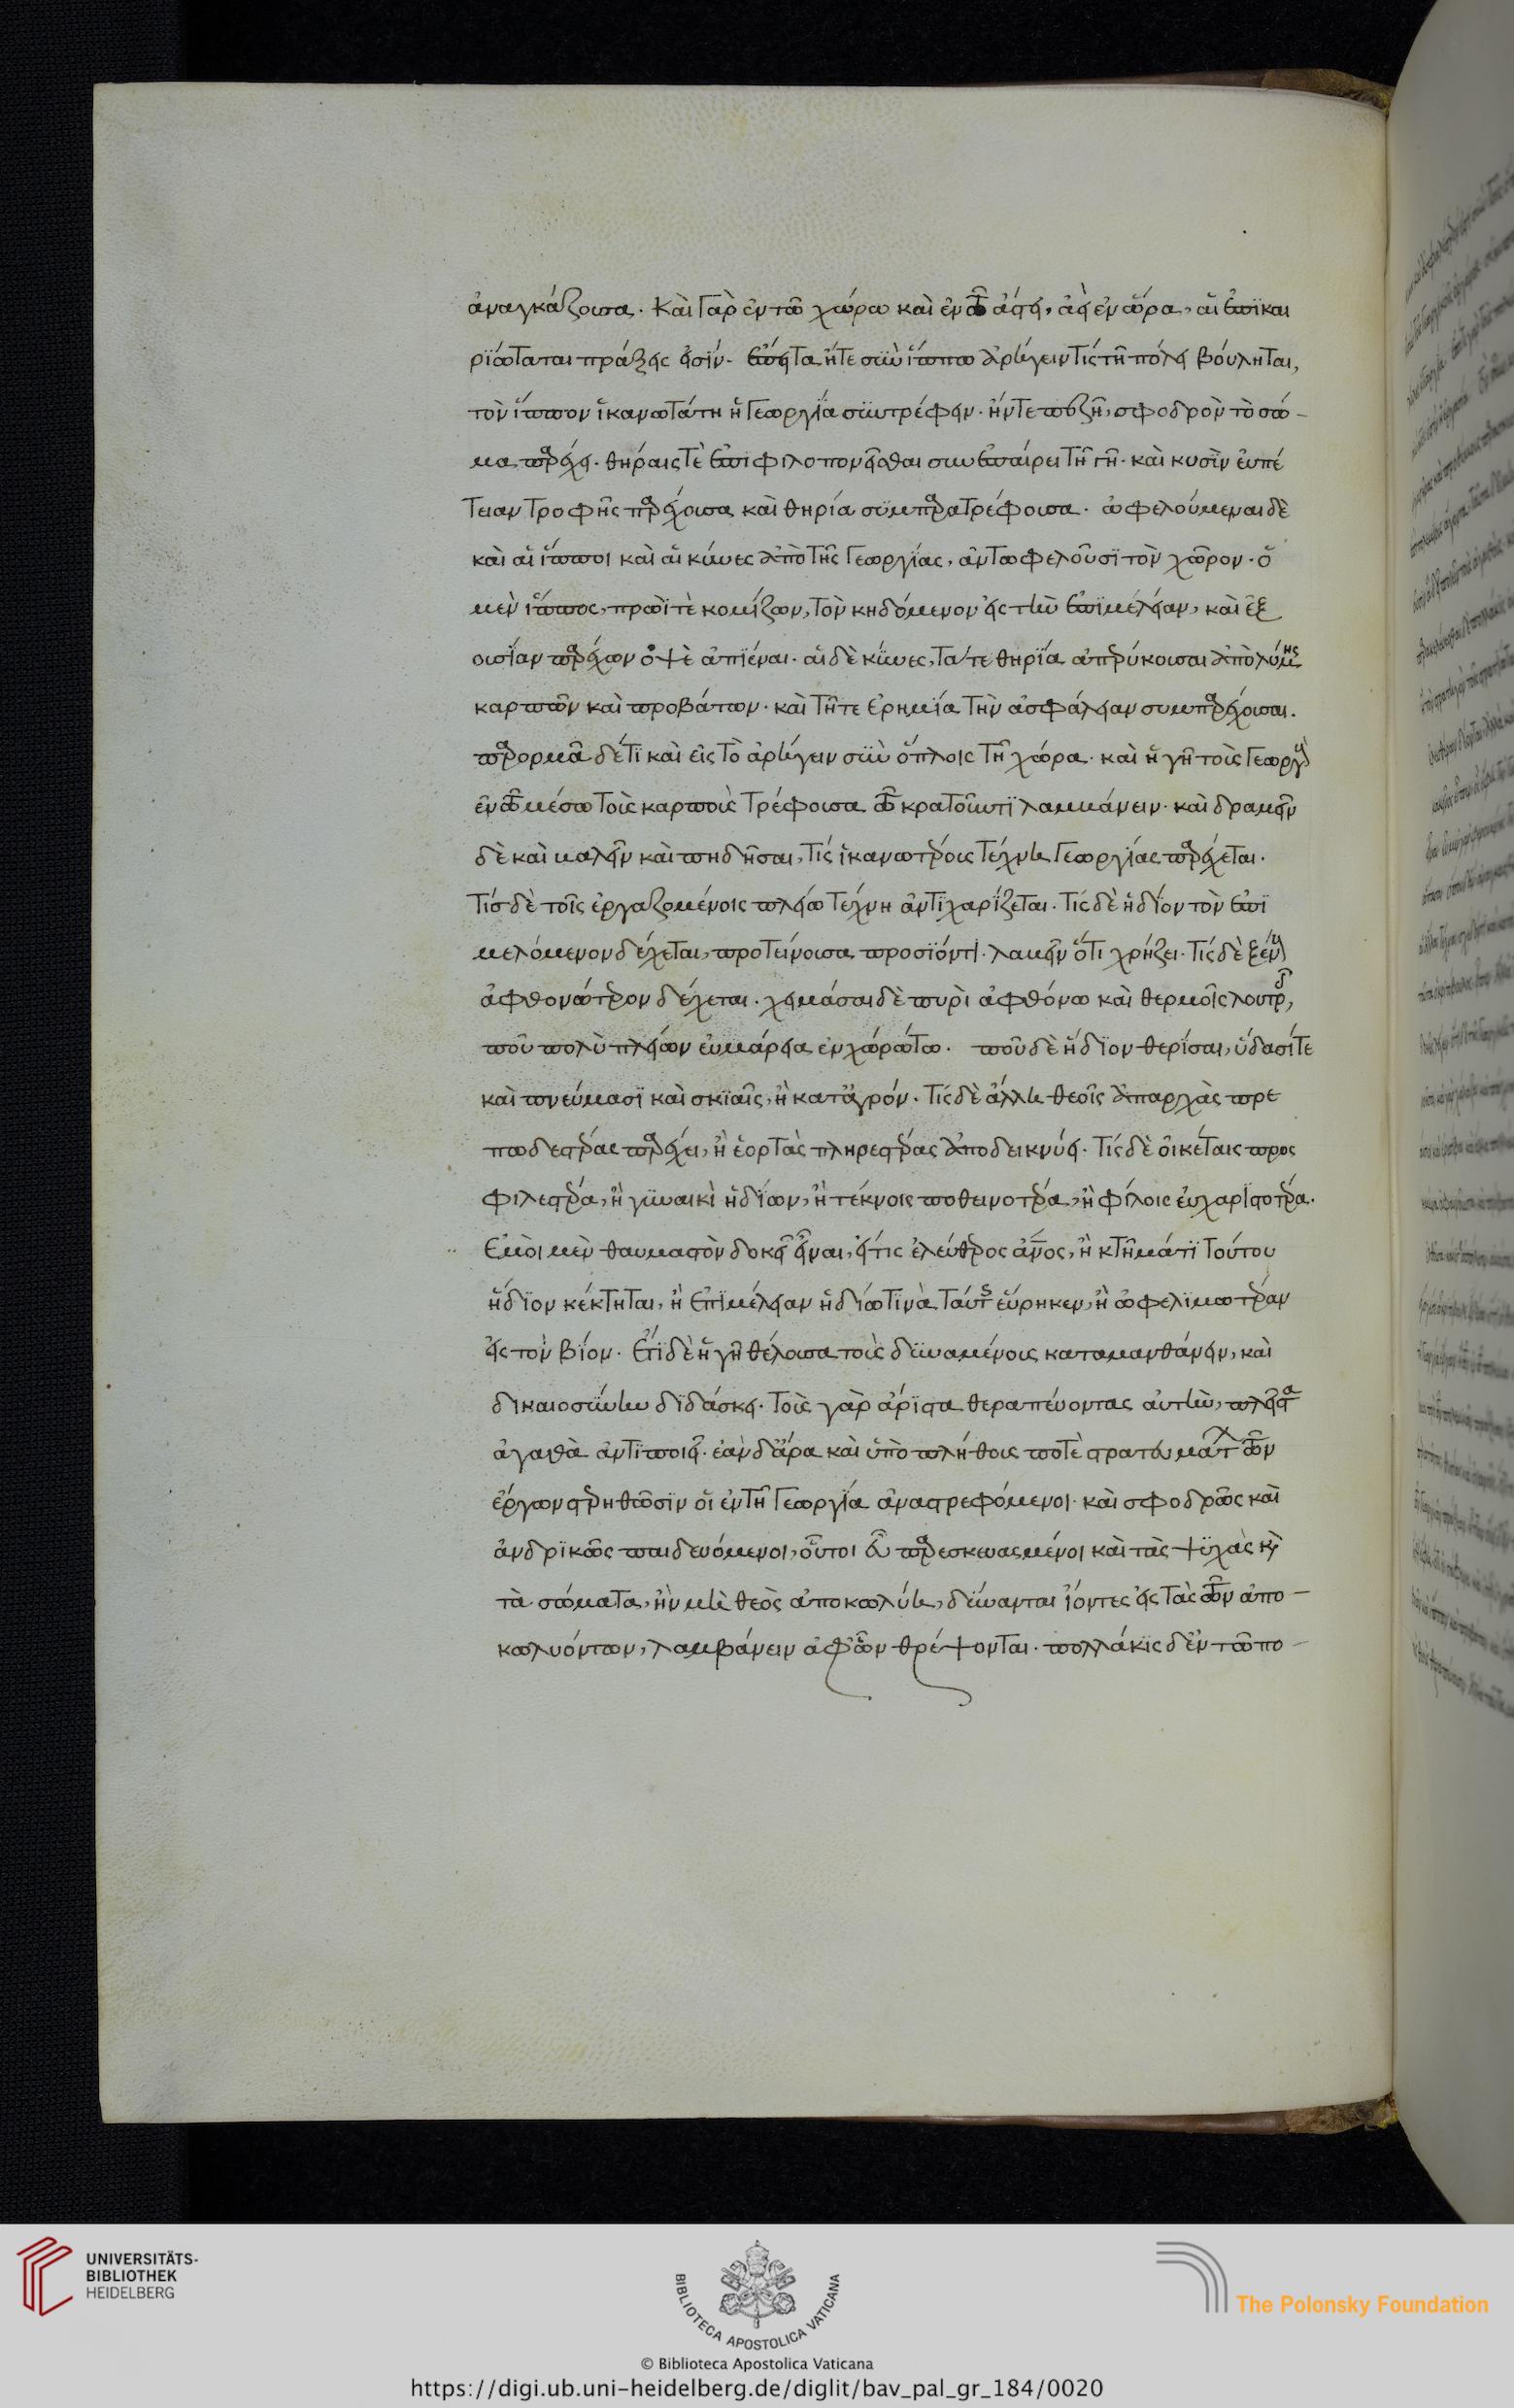 ἀναγκάζουσα. Καὶ γὰρ ἐν τῶ χώρω καὶ ἐν τῶ ἄστει, ἀεὶ ἐν ὥρα, αἱ ἐπικαι
ριώταται πράξεις εἰσίν. ἔπειτα ἤτε σὺν ἵππω ἀρήγειν τίς τῆ πόλει βούληται,
τὸν ἵππον ἱκανωτάτη ἡ γεωργία συντρέφειν. ἤν τε πεζῆ, σφοδρὸν τὸ σῶ-
μα παρέχει. θήραις τὲ ἐπιφιλοπονεῖσθαι συνεπαίρει τῆ γῆ. καὶ κυσὶν εὐπέ
τειαν τροφῆς παρέχουσα καὶ θηρία συμπαρατρέφουσα. ὠφελούμεναι δὲ
καὶ αἱ ἵπποι καὶ αἱ κύνες ἀπὸ τῆς γεωργίας, ἀντωφελοῦσι τὸν χῶρον. ὁ
μὲν ἵππος, πρωΐ τὲ κομίζων, τὸν κηδόμενον εἰς τὴν ἐπιμέλειαν, καὶ ἐξ
ουσίαν παρέχων ὀψὲ ἀπιέναι. αἱ δὲ κύνες, τά τε θηρία ἀπερύκουσαι ἀπὸ λύμης
καρπῶν καὶ προβάτων. καὶ τῆ τε ἐρημία τὴν ἀσφάλειαν συμπαρέχουσαι.
παρορμᾶ δέ τι καὶ εἰς τὸ ἀρήγειν σὺν ὅπλοις τῆ χώρα. καὶ ἡ γῆ τοὺς γεωργοὺς
ἐν τῶ μέσω τοὺς καρποὺς τρέφουσα τῶ κρατοῦντι λαμμάνειν. καὶ δραμεῖν
δὲ καὶ βαλεῖν καὶ πηδῆσαι, τίς ἱκανωτέρους τέχνη γεωργίας παρέχεται.
τίς δὲ τοῖς ἐργαζομένοις πλείω τέχνη ἀντιχαρίζεται. τίς δὲ ἥδιον τὸν ἐπι
μελόμενον δέχεται, προτείνουσα προσιόντι. λαβεῖν ὅτι χρήζει. τίς δὲ ξένους
ἀφθονώτερον δέχεται. χειμάσαι δὲ πυρὶ ἀφθόνω καὶ θερμοῖς λουτροῖς,
ποῦ πολὺ πλείων εὐμάρεια ἐν χώρω τω. ποῦ δὲ ἥδιον θερίσαι, ὕδασί τε
καὶ πνεύμασι καὶ σκιαῖς, ἢ κατ' ἀγρόν. τίς δὲ ἄλλη θεοῖς ἀπαρχὰς πρε
πωδεστέρας παρέχει, ἢ ἑορτὰς πληρεστέρας ἀποδεικνύει. τίς δὲ οἰκέταις προς
φιλεστέρα, ἢ γυναικὶ ἡδίων, ἢ τέκνοις ποθεινοτέρα, ἢ φίλοις εὐχαριστοτέρα.
Ἐμοὶ μὲν θαυμαστὸν δοκεῖ εἶναι, εἴ τις ἐλεύθερος ἄνος, ἢ κτῆμά τι τούτου
ἥδιον κέκτηται, ἢ ἐπιμέλειαν ἡδίω τινὰ ταύτης εὕρηκεν, ἢ ὠφελιμωτέραν
εἰς τὸν βίον. ἔτι δὲ ἡ γῆ θέλουσα τοὺς δυναμένους καταμανθάνειν, καὶ
δικαιοσύνην διδάσκει. τοὺς γὰρ ἄριστα θεραπεύοντας αὐτὴν, πλεῖστα
ἀγαθὰ ἀντιποιεῖ. ἐὰν δ' ἄρα καὶ ὑπὸ πλήθους ποτὲ στρατευμάτων τῶν
ἔργων στερηθῶσιν οἱ ἐν τῆ γεωργία ἀναστρεφόμενοι. καὶ σφοδρῶς καὶ
ἀνδρικῶς παιδευόμενοι, οὗτοι εὖ παρεσκευασμένοι καὶ τὰς ψυχὰς καὶ
τὰ σώματα, ἢν μὴ θεὸς ἀποκωλύη, δύνανται ἰόντες εἰς τὰς τῶν ἀπο-
κωλυόντων, λαμβάνειν ἀφ' ὧν θρέψονται. πολλάκις δ' ἐν τῶ πο-
UNIVERSITÄTS-
BIBLIOTHEK
HEIDELBERG
BIBLIOTECA APOSTOLICA VATICANA
The Polonsky Foundation
© Biblioteca Apostolica Vaticana
https://digi.ub.uni-heidelberg.de/diglit/bav_pal_gr_184/0020